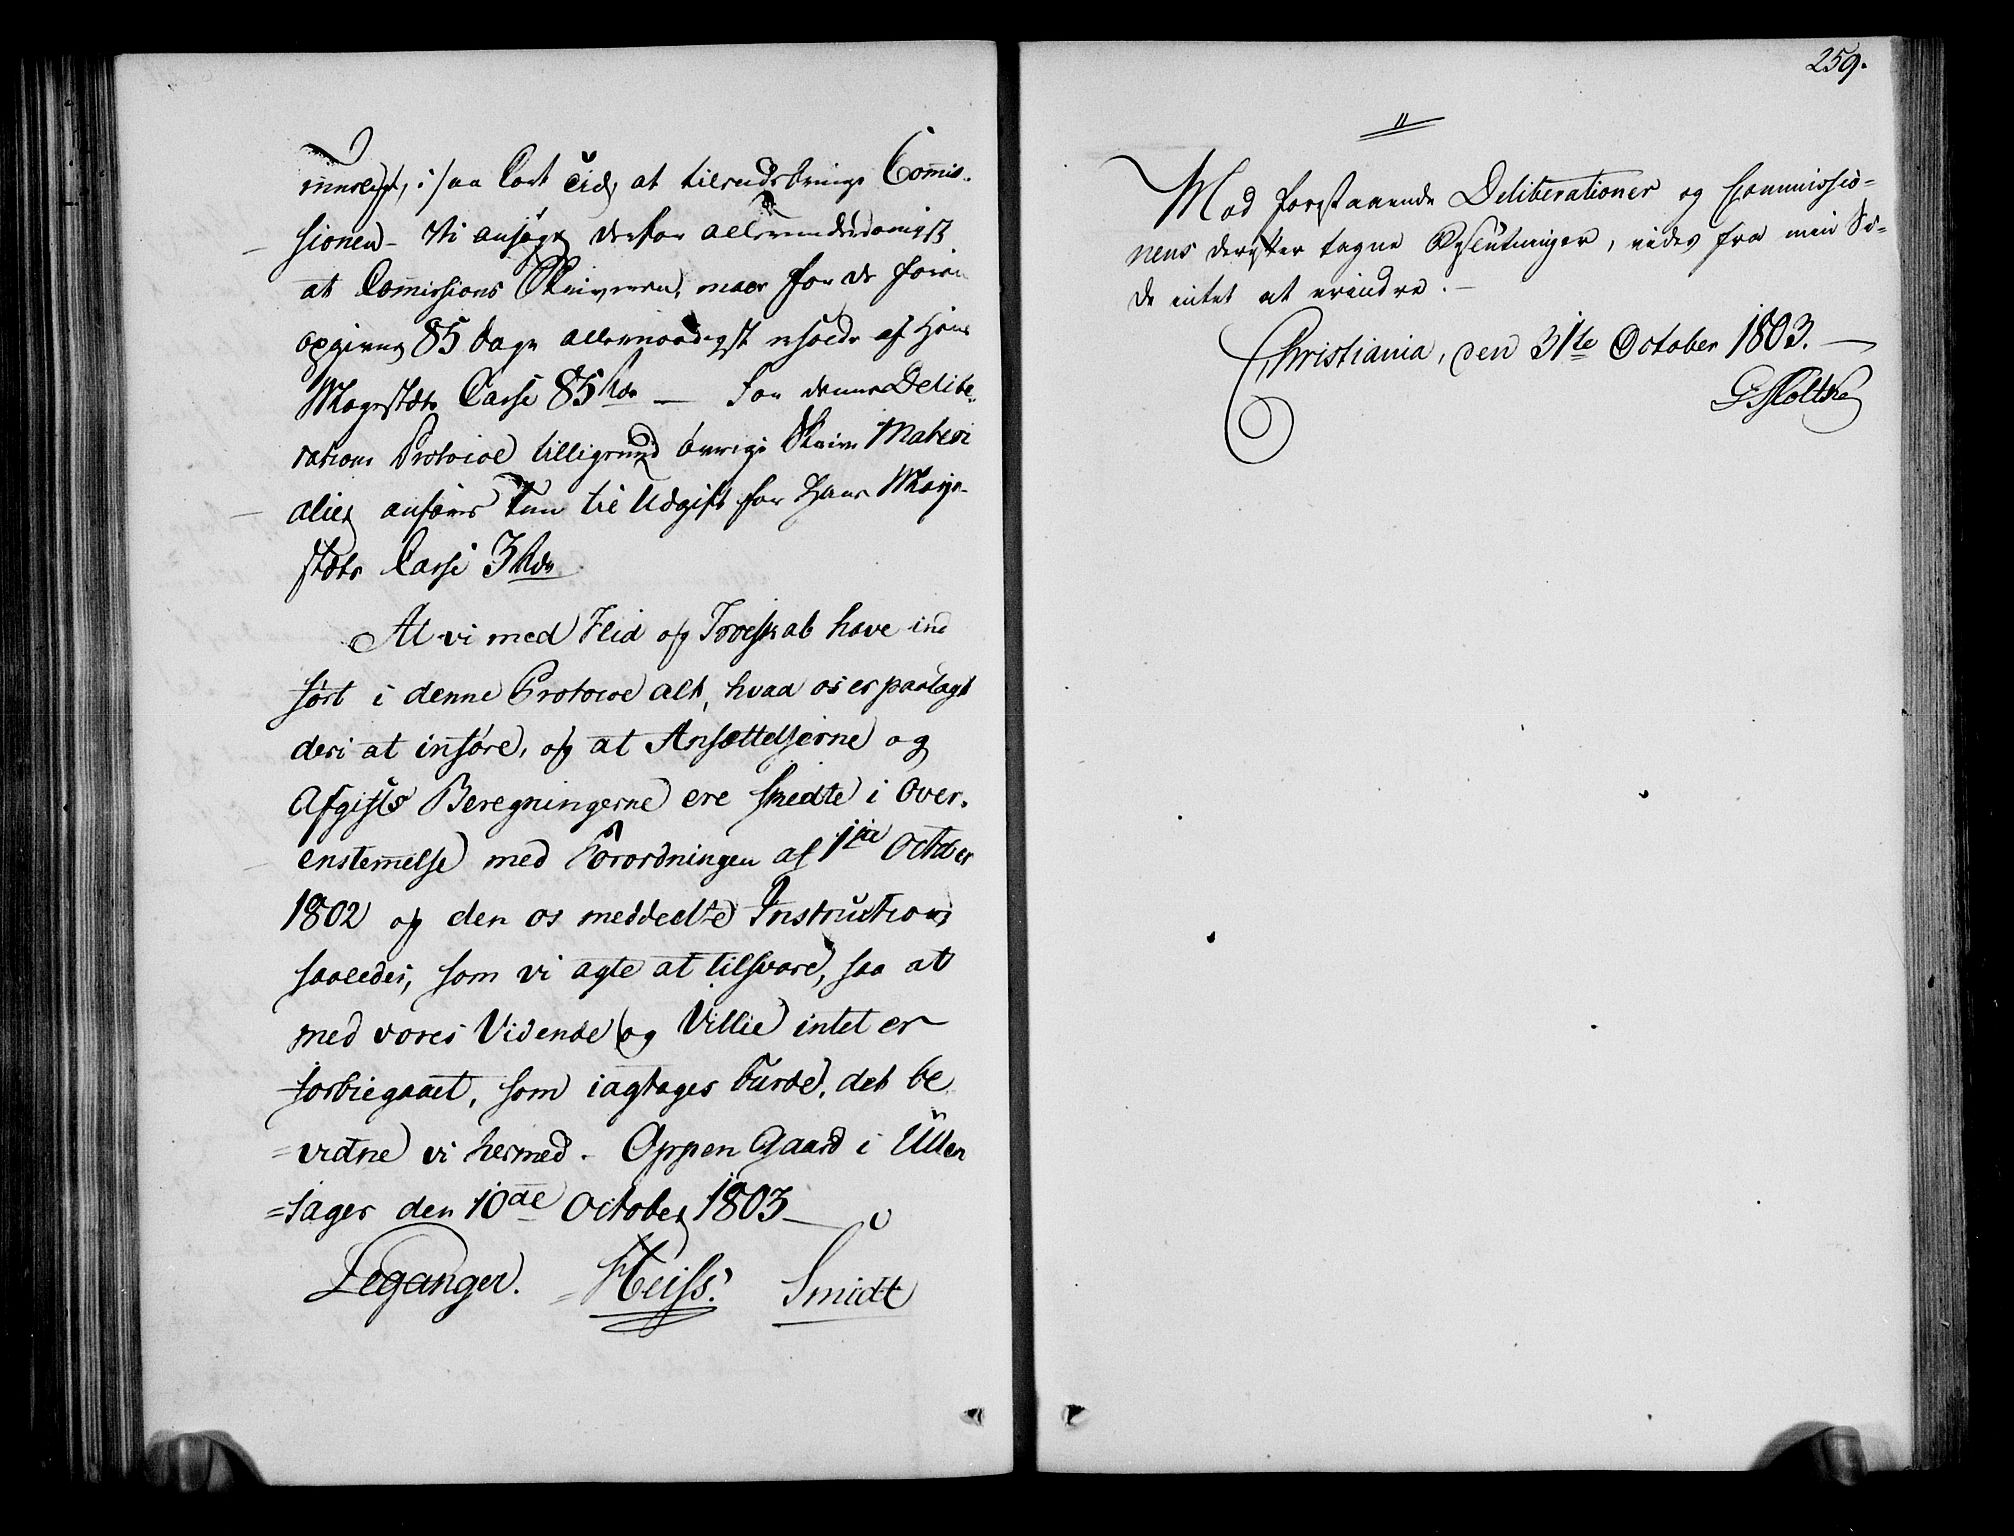 mueligt, i saa kort Tid, at tilendebringe Com̅is-
sionen - Vi ansøge derfor allerunderdanigst
at Com̅issions Skriveren, maae for de foran
opgivne 85 Dage allernaadigst nÿde af Hans
Majestæts Casse 85 Rdr — For denne Delibe-
rations Protocol tilligemed øvrige Skrive Materi
alier anføres kun til Udgift for Hans Maje-
stæts Casse 3 Rdr.
At vi med Flid og Troeskab have ind
ført i denne Protocol alt, hvad os er paalagt
deri at indføre, og at Ansættelserne og
Afgifts Beregningerne ere skeedte i Over-
enstem̅else med Forordningen af 1ste October
1802 og den os meddeelte Instruction
saaledes, som vi agte at tilsvare, saa at
med vores Vidende og Villie intet er
forbiegaaet, som iagtages burde, det be
=vidne vi hermed. Oppen Gaard i Ullen
=sager den 10de October 1803 —
Leganger. Heiss. Smidt
259.
Mod forestaaende Deliberationer og Commissio=
nens derefter tagne Beslutninger, vides fra min Si=
de intet at erindre. —
Christiania, den 31te October 1803. —
G Moltke